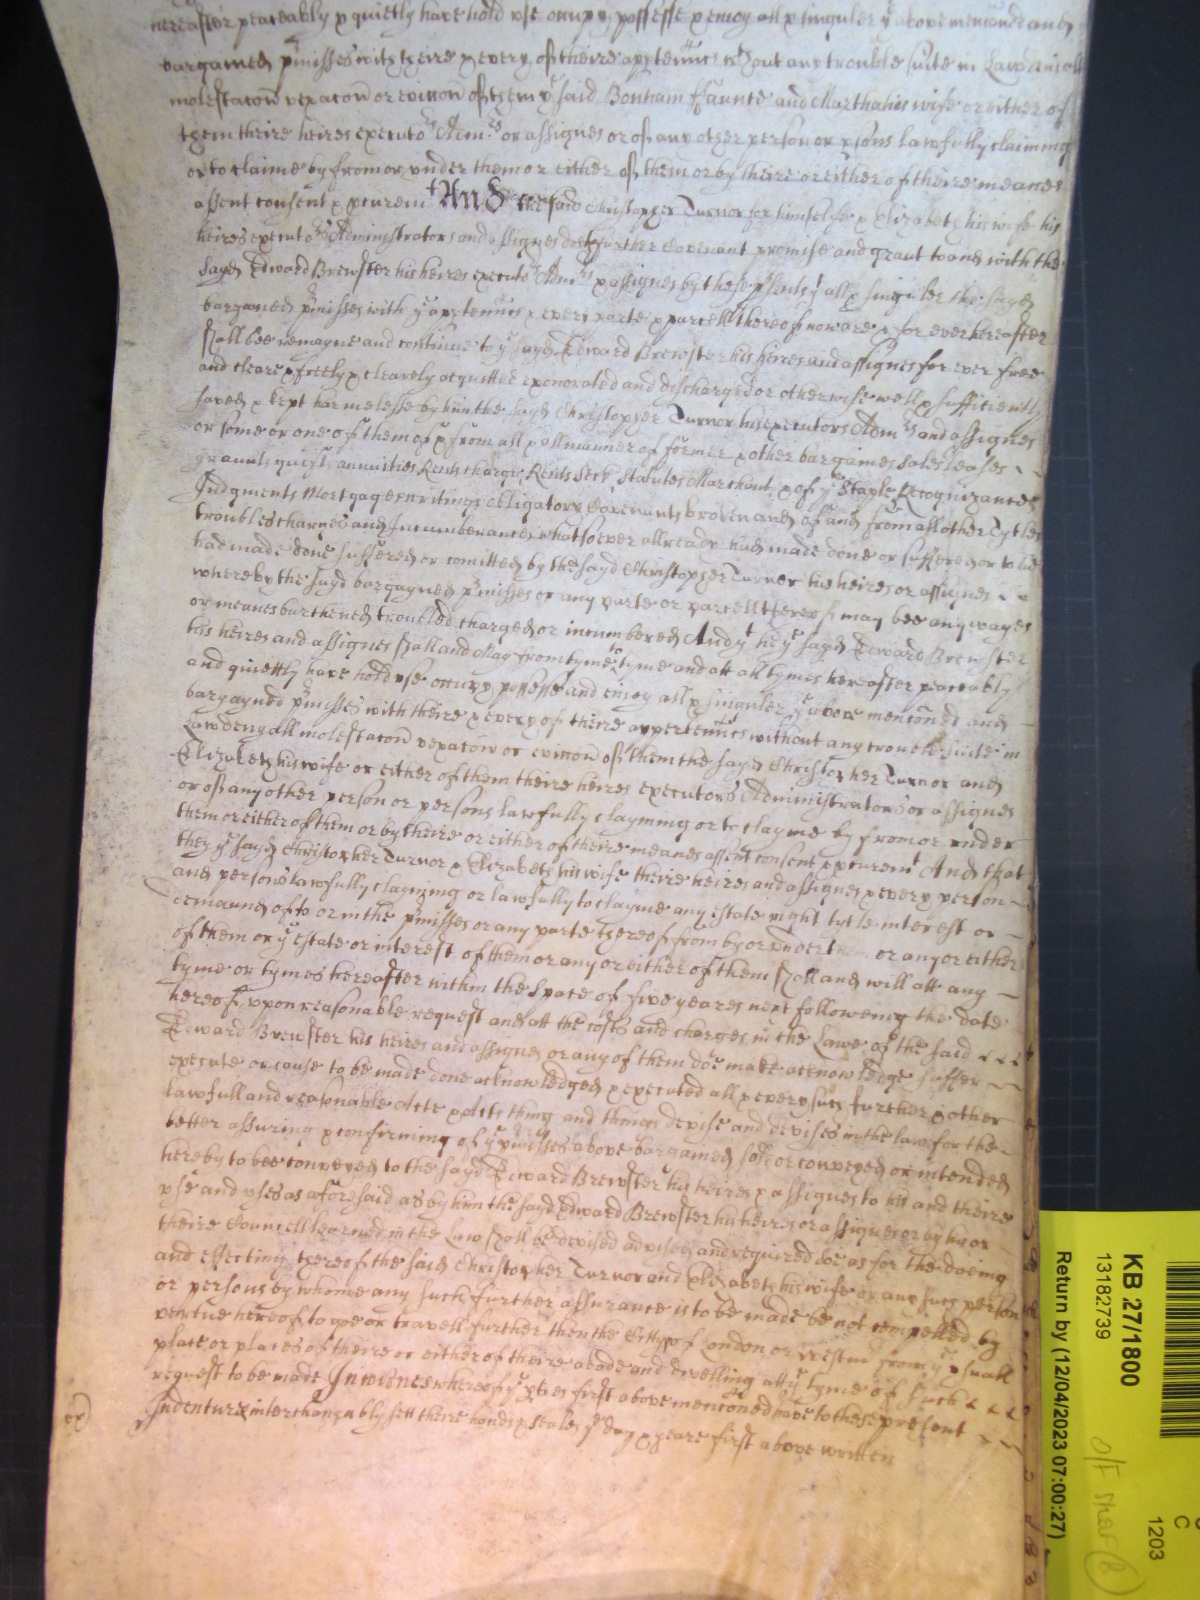 hereafter peaceably & quietly have hold use occupy possesse & enioy all & singuler yᵉ above menconed and
bargained pᵣmisses with theire & every of theire appˢtennᶜᵉˢ wᵗʰout any trouble suite in Law deniall
molestacon vexacon or eviccon of them yᵉ said Bonham ffaunte and Martha his wife or either of
them theire heires executoʳˢ Admʳˢ or assignes or of any other person or psons lawfully claiming
or to claime by from or under them or either of them or by theire or either of theire meanes
assent consent & pcuremᵗ And the said Christopher Turnor for himselfe & Elizabeth his wife his
heires executoʳˢ Administrators and assignes doth further Covenant promise and graut to and with the
sayd Edward Brewster his heires executoʳˢ Admʳˢ & assignes by these pˢents yᵗ all & singuler the sayd
bargained pᵣmisses with yᵉ apptennᶜᵉˢ & every parte & parcell thereof now are & for ever hereafter
shall bee remayne and continue to yᵉ sayd Edward Brewster his heires and assignes for ever free
and cleare & freely & clearely acquitted exonorated and discharged or otherwise well & sufficiently
saved & kept harmelesse by him the sayd Christopher Turnor his executors Admʳˢ and assignes
or some or one of them of & from all & all manner of former & other bargaines sales leases
graunts guifts annuities Rents charge Rents Seck Statutes Marchant & of yᵉ Staple Recognizances
Judgments Mortgages writings obligatory Covenants broken and of and from all other Tytles
troubles charges and Incumbrances whatsoever allready had made done or suffered or to be
had made done suffered or comitted by the sayd Christopher Turnor his heires or assignes
whereby the sayd bargayned pᵣmisses or any parte or parcell thereof may bee any wayes
or meanes burthened troubled charged or incumbered And yᵗ he yᵉ sayd Edward Brewster
his heires and assignes shall and May from tyme to tyme and att all tymes hereafter peaceably
and quiettly have hold use occupy possesse and enioy all & singuler yᵉ above mentoned and
bargayned pᵣmisses with theire & every of theire appertennᶜᵉˢ without any trouble suite in
Law denyall molestacon vexacon or eviccon of them the sayd Christopher Turnor and
Elizabeth his wife or either of them theire heires executors Administrators or assignes
or of any other person or persons lawfully clayming or to clayme by from or under
them or either of them or by theire or either of theire meanes assent consent & pcuremᵗ And that
they yᵉ sayd Christopher Turnor & Elizabeth his wife theire heires and assignes & every person
and persons lawfully clayming or lawfully to clayme any estate right tytle interest or
demaund of to or in the pᵣmisses or any parte thereof from by or under them or any or either
of them or yᵉ estate or interest of them or any or either of them shall and will att any
tyme or tymes hereafter within the space of five yeares next following the date
hereof uppon reasonable request and att the costs and charges in the Lawe of the said
Edward Brewster his heires and assignes or any of them doe make acknowledge suffer
execute or cause to be made done acknowledged & executed all & every such further & other
lawfull and reasonable Acte & acts thing and things devise and devises in the law for the
better assuring & confirming of yᵉ pᵣmisses above bargained sold or conveyed or intended
hereby to bee conveyed to the sayd Edward Brewster his heires & assignes to his and theire
use and uses as aforesaid as by him the sayd Edward Brewster his heires or assignes or by his or
theire Councell learned in the Law shall be devised advised and required soe as for the doeing
and effecting thereof the said Christopher Turnor and Elizabeth his wife or any such person
or persons by whome any such further assurance is to be made be not compelled by
vertue hereof to goe or travell further then the Cittys of London or Westmʳ from yᵉ usuall
place or places of theire or either of theire abode and dwelling att yᵉ tyme of such
request to be made In witnes whereof yᵉ pties first above mentoned have to these present
Indentures interchangably sett theire hands & seales yᵉ day & yeare first above written
KB 27/1800
13182739
Return by (12/04/2023 07:00:27)
C
1203